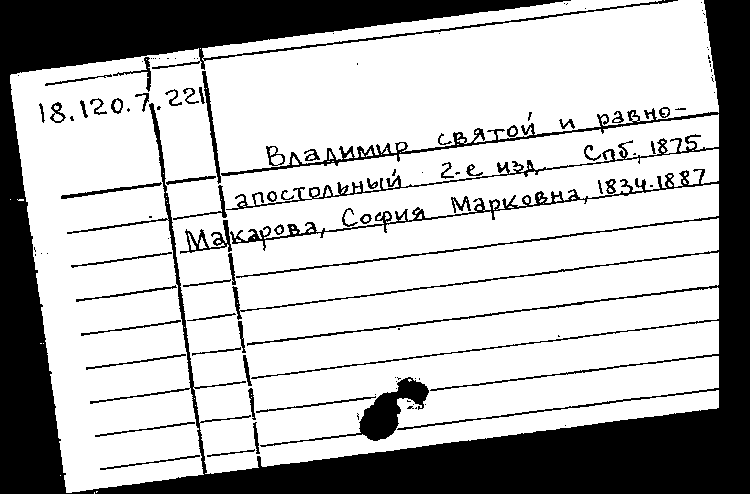 18.120.7.221
Владимир святой и равно-
апостольный. 2-е изд. Спб., 1875.
Макарова, София Марковна, 1834-1887